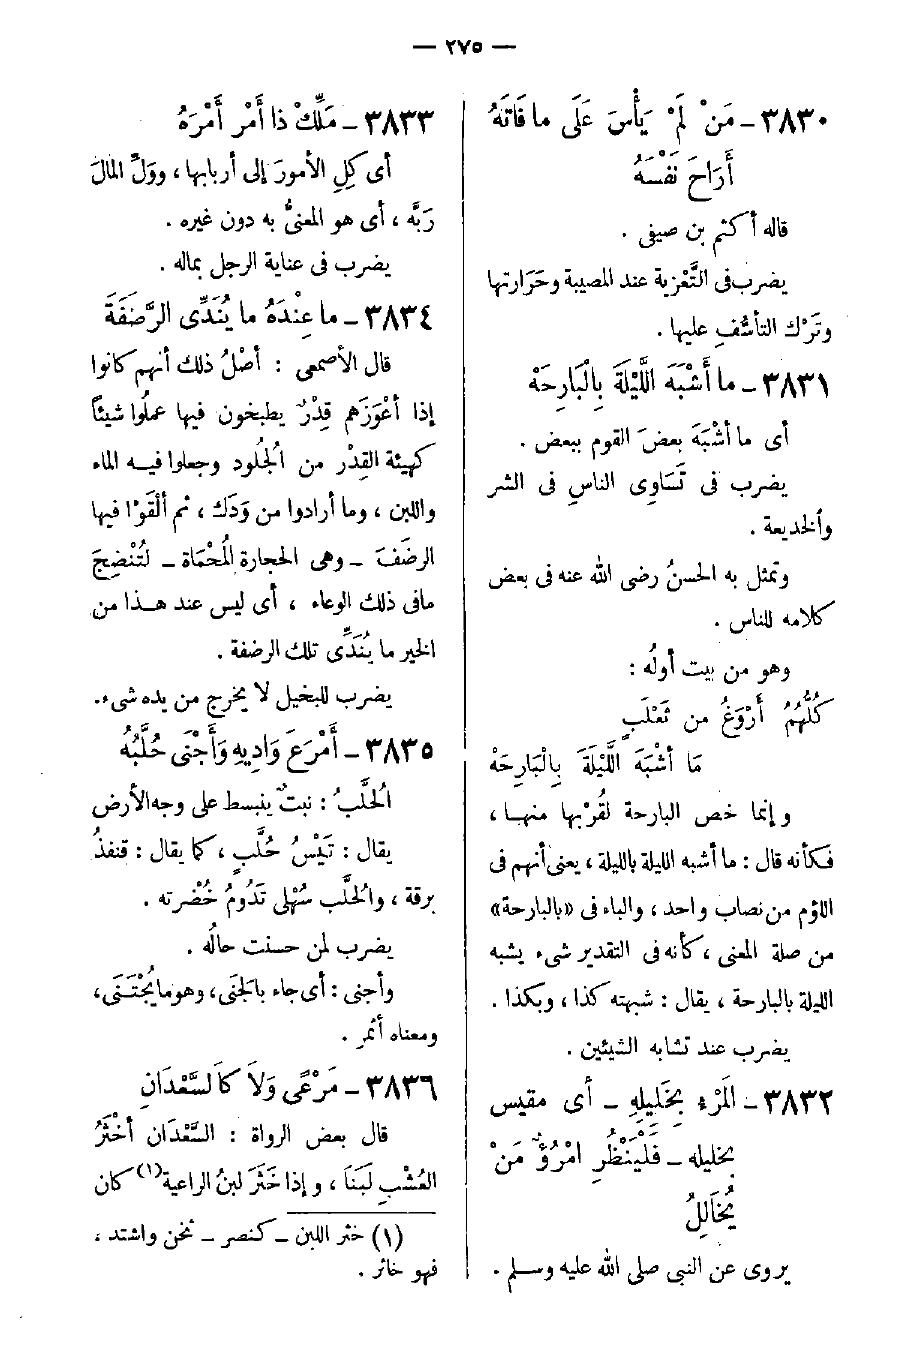 — ٢٧٥ —
٣٨٣٠ – مَنْ لَمْ يَأْسَ عَلَى ما فَاتَهُ
أَرَاحَ نَفْسَهُ
قاله أكثم بن صيفى .
يضرب فى التَّعْزية عند المصيبة وحَرَارتها
وتَرْك التأسُّفِ عليها .
٣٨٣١ – ما أَشْبَهَ اللَّيْلَةَ بِالْبَارِحَهْ
أى ما أشْبَهَ بعضَ القوم ببعض .
يضرب فى تَسَاوِى الناسِ فى الشر
والخديعة .
وتمثل به الحسنُ رضى الله عنه فى بعض
كلامه للناس .
وهو من بيت أولُه :
كُلُّهُمُ أَرْوَغُ من ثَعْلَبٍ
مَا أشْبَهَ اللَّيْلَةَ بِالْبَارِحَهْ
وإنما خص البارحة لقُرْبها منها ،
فكأنه قال : ما أشبه الليلة بالليلة ، يعنى أنهم فى
اللؤم من نصاب واحد ، والباء فى «بالبارحة»
من صلة المعنى ، كأنه فى التقدير شىء يشبه
الليلة بالبارحة ، يقال : شبهته كذا ، وبكذا .
يضرب عند تشابه الشيئين .
٣٨٣٢ – المَرْء بِخَلِيلِهِ – أى مقيس
بخليله – فَلْيَنْظُرِ امْرُؤٌ مَنْ
يُخَالِلُ
يروى عن النبى صلى الله عليه وسلم .
٣٨٣٣ – مَلِّكْ ذا أَمْرٍ أَمْرَهُ
أى كِلِ الأمورَ إلى أربابها ، ووَلِّ المالَ
رَبَّه ، أى هو المعنىُّ به دون غيره .
يضرب فى عناية الرجل بماله .
٣٨٣٤ – ما عِنْدَهُ ما يُنَدِّى الرَّضَفَةَ
قال الأصمعى : أصْلُ ذلك أنهم كانوا
إذا أعْوَزَهم قِدْرٌ يطبخون فيها عملُوا شيئاً
كهيئة القِدْر من الجُلُود وجعلوا فيه الماء
واللبن ، وما أرادوا من وَدَك ، ثم ألْقَوْا فيها
الرضَفَ – وهى الحجارة المُحْمَاة – لتُنْضِجَ
مافى ذلك الوعاء ، أى ليس عند هذا من
الخير ما يُنَدِّى تلك الرضفة .
يضرب للبخيل لا يخرج من يده شىء .
٣٨٣٥ – أَمْرَعَ وَادِيهِ وَأَجْنَى حُلَّبُهُ
الحُلَّبُ : نبتٌ ينبسط على وجه الأرض
يقال : تَيْسُ حُلَّبٍ ، كما يقال : قنفذُ
برقة ، والحُلَّب سُهْلى تَدُومُ خُضْرته .
يضرب لمن حسنت حالُه .
وأجنى : أى جاء بالجَنَى ، وهو ما يُجْتَنَى ،
ومعناه أثمر .
٣٨٣٦ – مَرْعًى وَلاَ كَالسَّعْدَانِ
قال بعض الرواة : السَّعْدَان أخْثَرُ
العُشْبِ لَبَنَا ، وإذا خَثَرَ لبنُ الراعية(١) كان
(١) خثر اللبن – كنصر – ثخن واشتد ،
فهو خاثر .